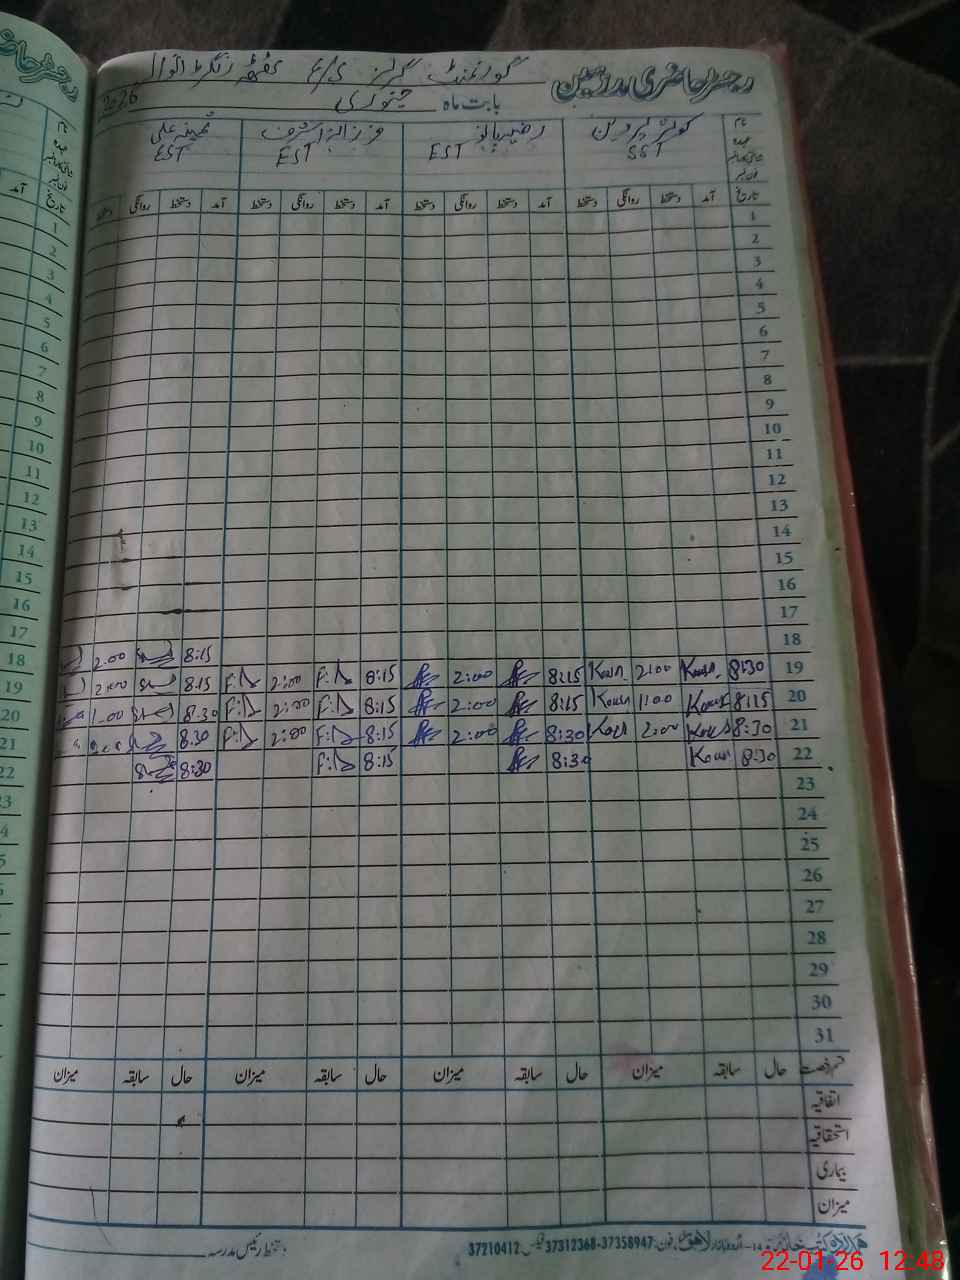 رجسٹر حاضری مدرسین
گورنمنٹ گرلز
بابت ماہ جنوری 2026
نام
عہدہ
کوثر پروین
SST
رضیہ بانو
EST
فرزانہ اشرف
EST
ثمینہ علی
EST
تاریخ آمد دستخط روانگی دستخط آمد دستخط روانگی دستخط آمد دستخط روانگی دستخط آمد دستخط روانگی دستخط
1
2
3
4
5
6
7
8
9
10
11
12
13
14
15
16
17
18 8:15 2.00
19 8:30 2:00 8:15 2:00 8:15 2:00 8:15 2:00
20 8:15 1:00 8:15 2:00 8:15 2:00 8:30 1.00
21 8:30 2:00 8:30 2:00 8:15 2:00 8:30
22 8:30 8:30 8:15 8:30
23
24
25
26
27
28
29
30
31
قسم رخصت حال سابقہ میزان حال سابقہ میزان حال سابقہ میزان حال سابقہ میزان
اتفاقیہ
استحقاقیہ
بیماری
میزان
دستخط رئیس مدرسہ
اردو بازار لاہور فون: 37358947-37312368 فیکس 37210412
22-01-26 12:48